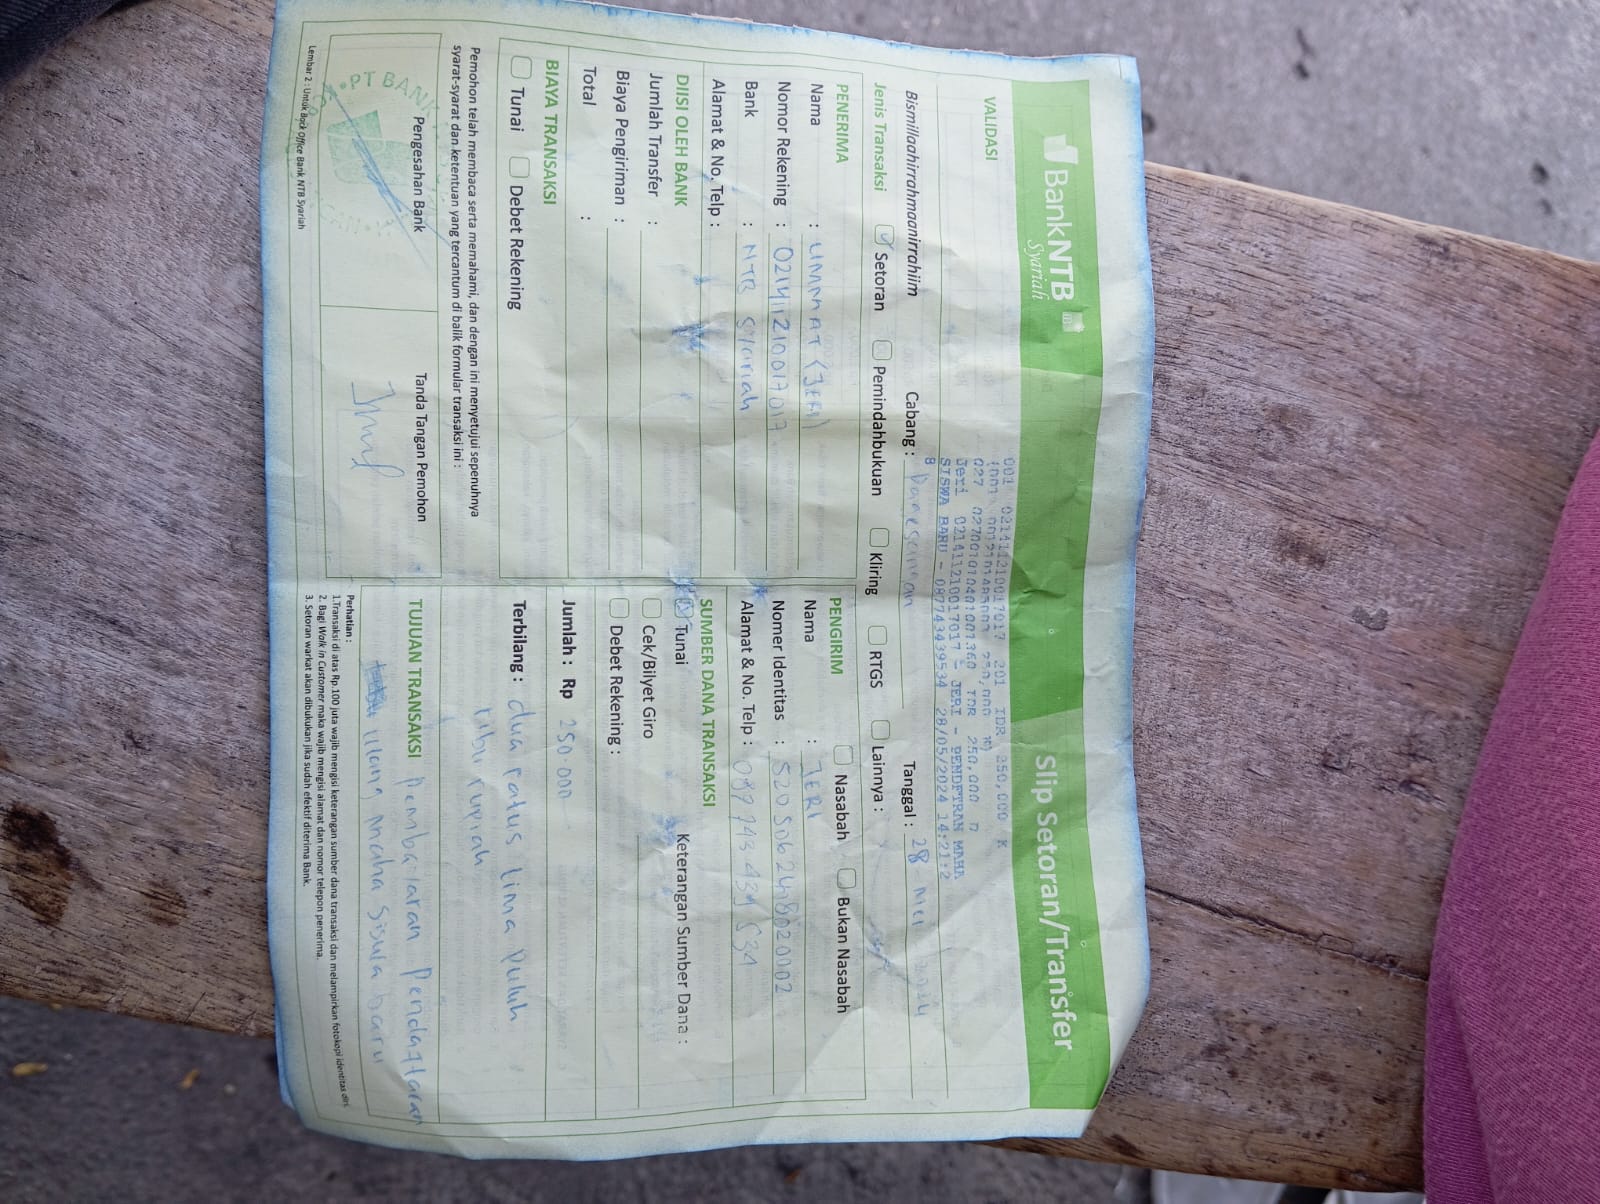 BankNTB
Syariah
Slip Setoran/Transfer
VALIDASI
001 021411210017017 201 IDR 250,000 K
250,000
027 0270010104001001360 IDR 250,000 D
Jeri 021411210017017 - JERI - PENDFTRAN MAHA
SISWA BARU - 087743439534 28/05/2024 14:21:2
8
Bismillaahirrahmaanirrahiim
Cabang :
Tanggal : 28 - Mei 2024
Jenis Transaksi
Setoran
Pemindahbukuan
Kliring
RTGS
Lainnya :
PENERIMA
Nama : UMMAT (JERI)
Nomor Rekening : 02141210017017
Bank : NTB Syariah
Alamat & No. Telp :
PENGIRIM
Nasabah
Bukan Nasabah
Nama : JERI
Nomer Identitas : 5205062418020002
Alamat & No. Telp : 087743439534
DIISI OLEH BANK
Jumlah Transfer :
Biaya Pengiriman :
Total :
SUMBER DANA TRANSAKSI
Tunai
Keterangan Sumber Dana :
Cek/Bilyet Giro
Debet Rekening :
BIAYA TRANSAKSI
Tunai
Debet Rekening
Jumlah : Rp 250.000
Terbilang : dua ratus lima puluh
ribu rupiah
Pemohon telah membaca serta memahami, dan dengan ini menyetujui sepenuhnya
syarat-syarat dan ketentuan yang tercantum di balik formular transaksi ini :
Pengesahan Bank
PT BANK
Tanda Tangan Pemohon
TUJUAN TRANSAKSI Pembayaran Pendaftaran
Ulang Mahasiswa baru
Perhatian :
1.Transaksi di atas Rp.100 juta wajib mengisi keterangan sumber dana transaksi dan melampirkan fotokopi identitas diri.
2. Bagi Walk in Customer maka wajib mengisi alamat dan nomor telepon penerima.
3. Setoran warkat akan dibukukan jika sudah efektif diterima Bank.
Lembar 2 : Untuk Back Office Bank NTB Syariah